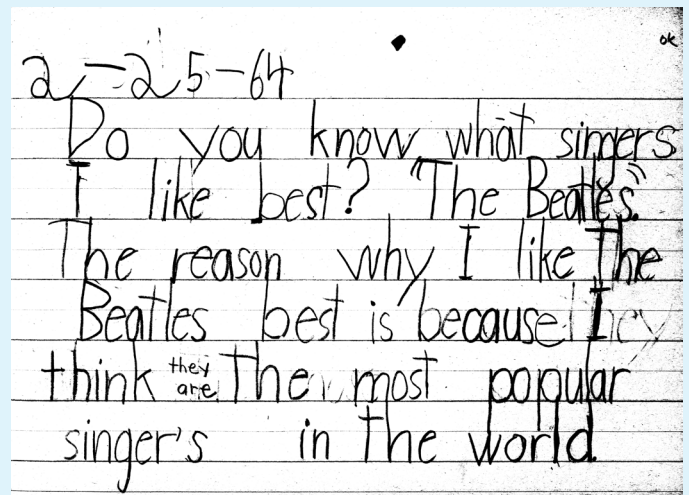 ok
2-25-64
Do you know what singers
I like best? "The Beatles."
The reason why I like The
Beatles best is because I
think they are The most popular
singer's in the world.